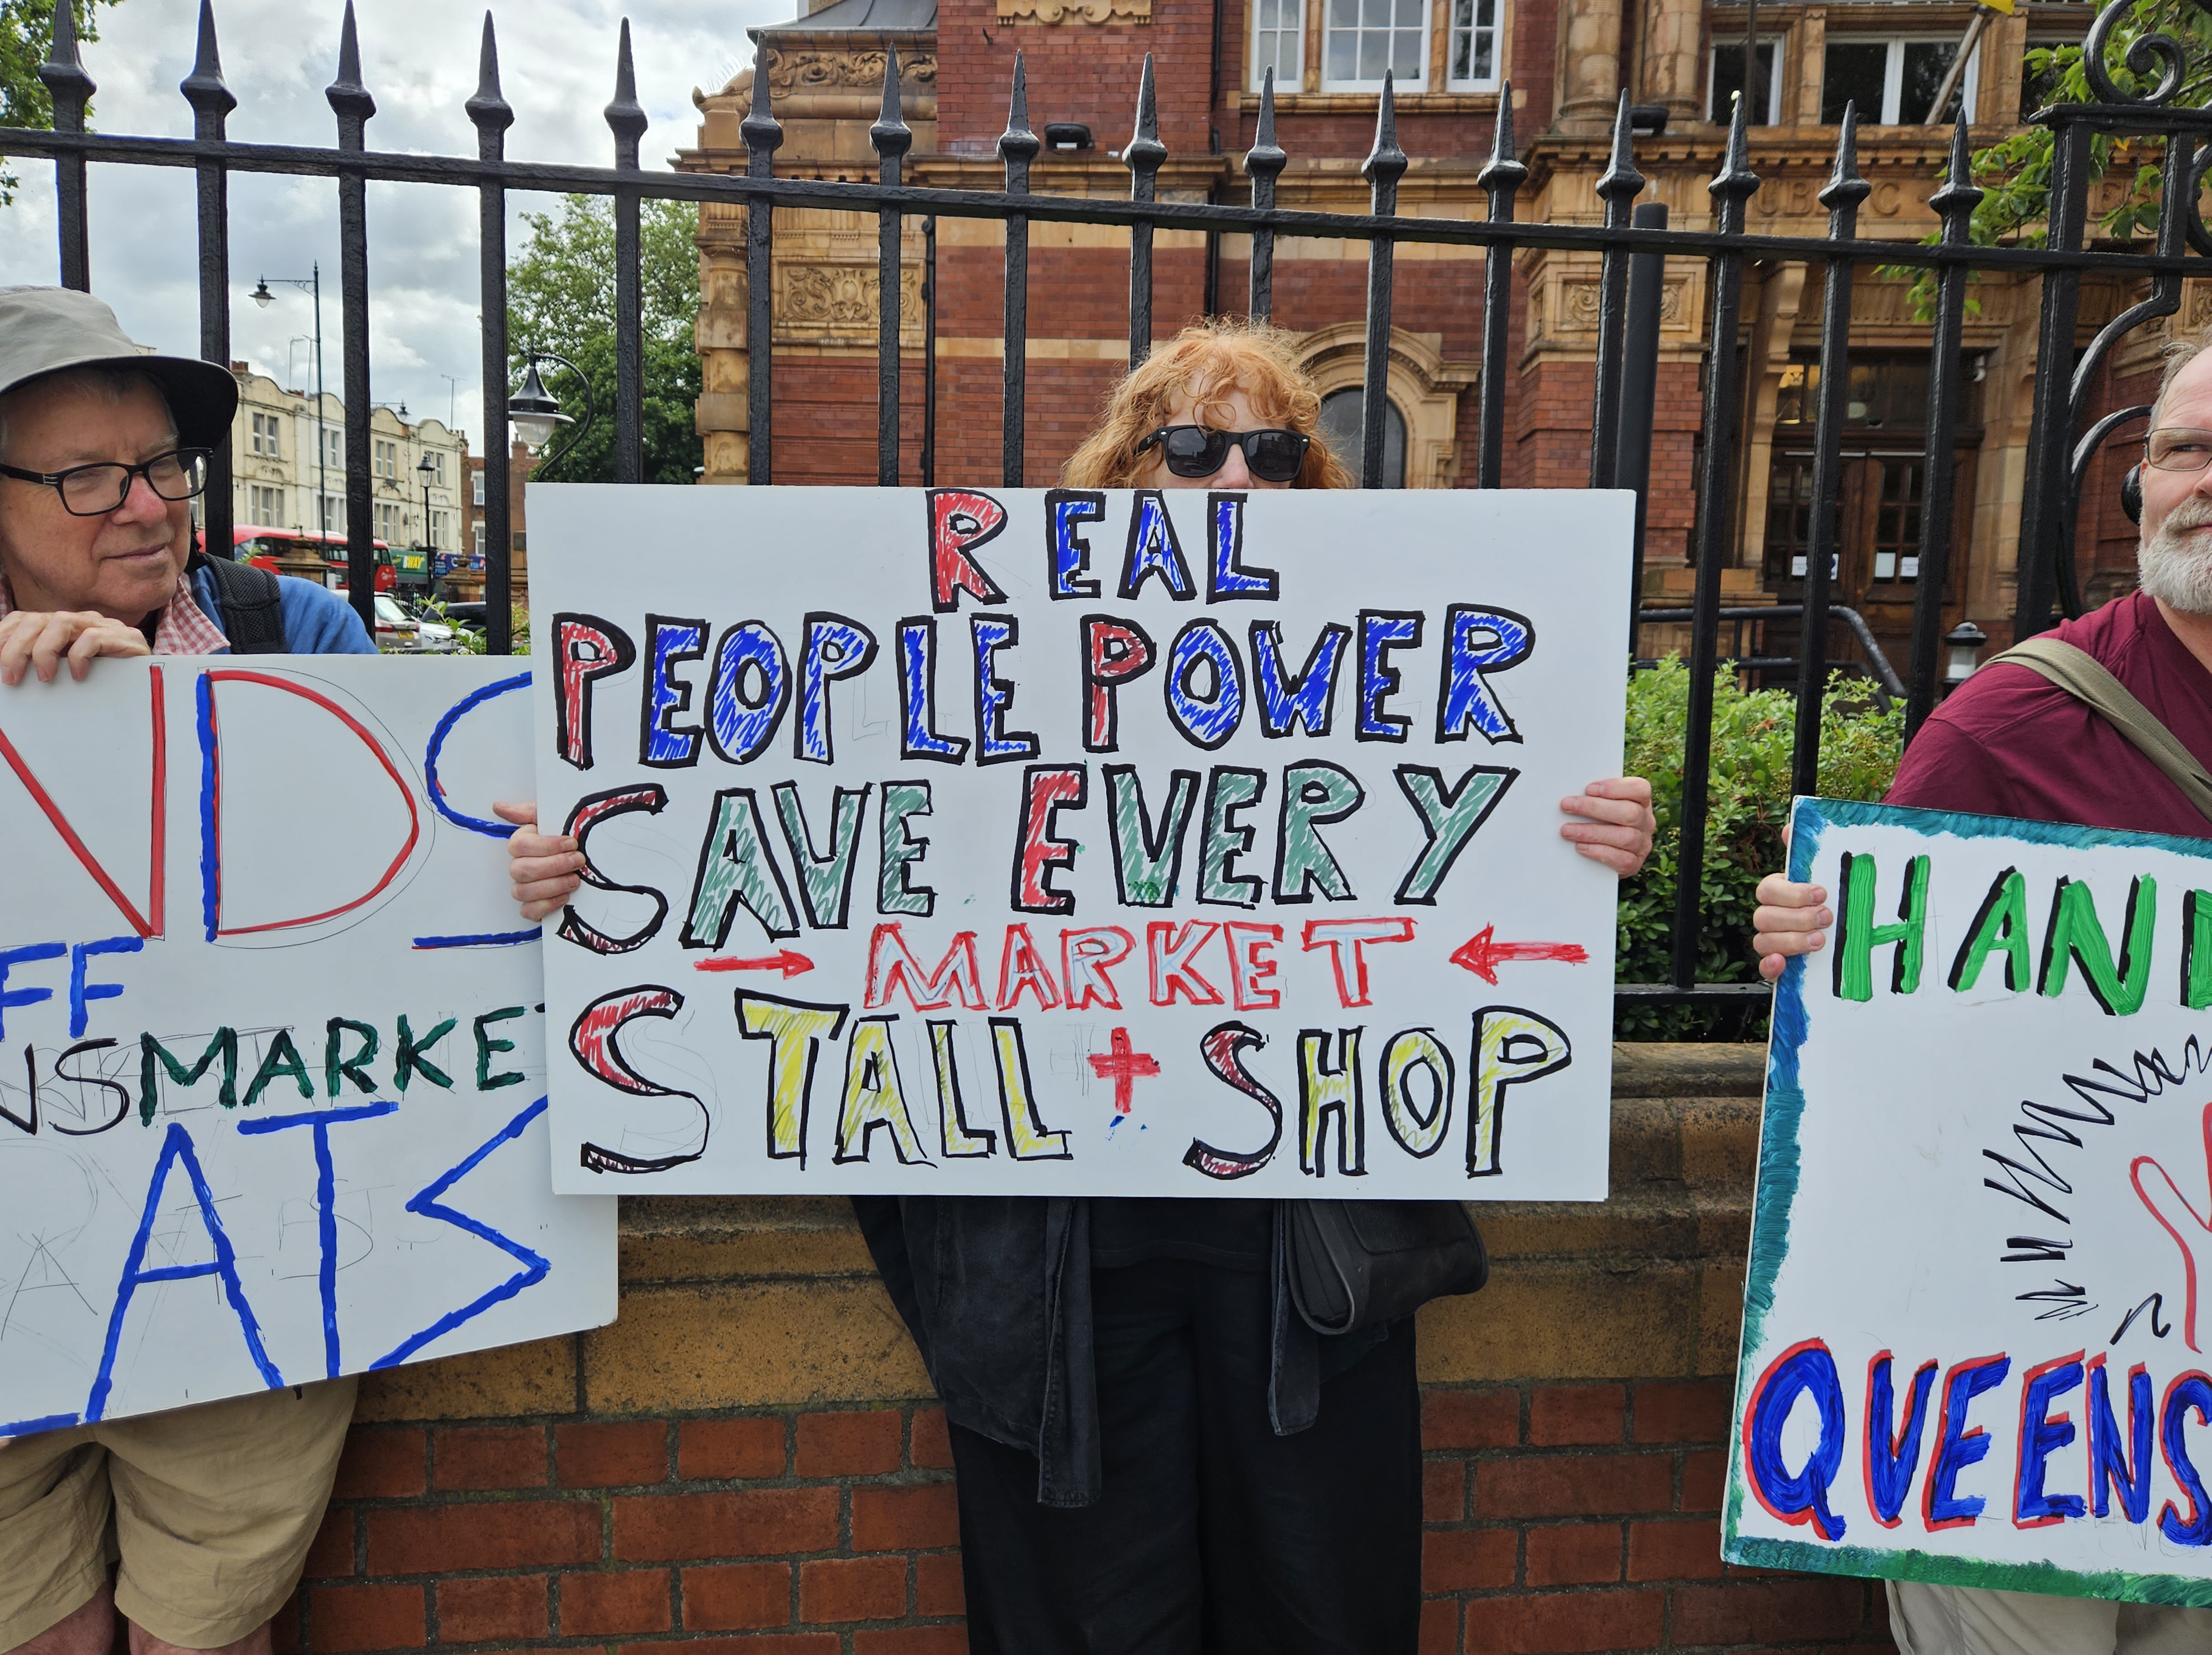 NDS
FF
NS MARKE
ATS
REAL
PEOPLE POWER
SAVE EVERY
→ MARKET ←
STALL + SHOP
HAN
QUEENS